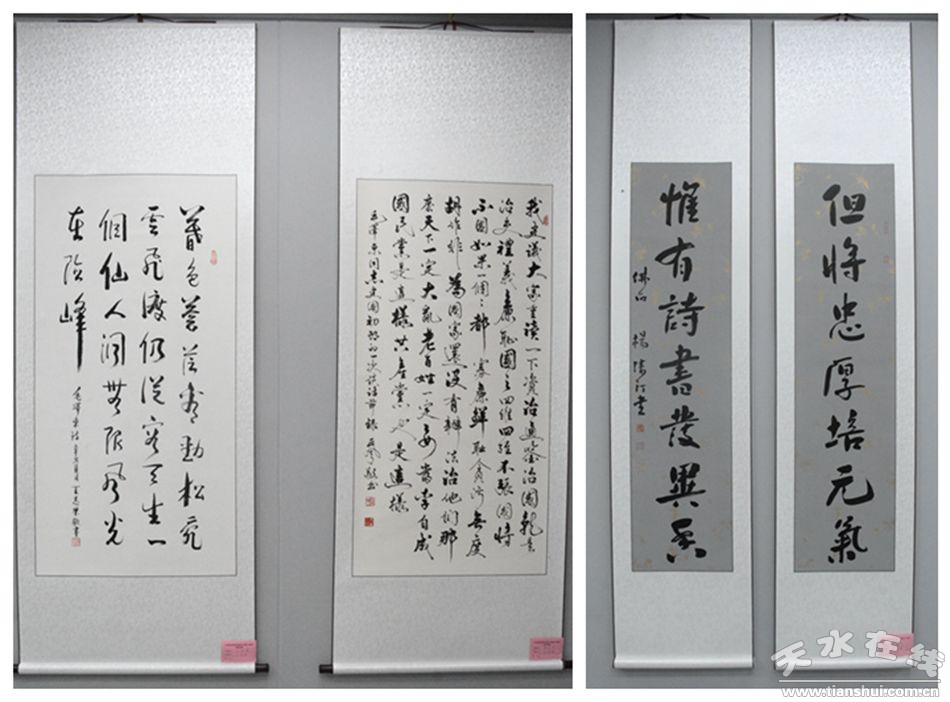 暮色蒼茫看勁松亂
雲飛渡仍從容天生一
個仙人洞無限風光
在險峰
毛澤東詩
我建議大家重讀一下資治通鑒治國就是
治吏禮義廉恥國之四維四維不張國將
不國如果一個々都寡廉鮮恥貪污無度
胡作非為國家還沒有辦法治他們那
麼天下一定大亂老百姓一定要當李自成
國民黨是這樣共產黨也是這樣
毛澤東同志建國初期的一次談話節錄
但將忠厚培元氣
惟有詩書發異香
天水在线
www.tianshui.com.cn